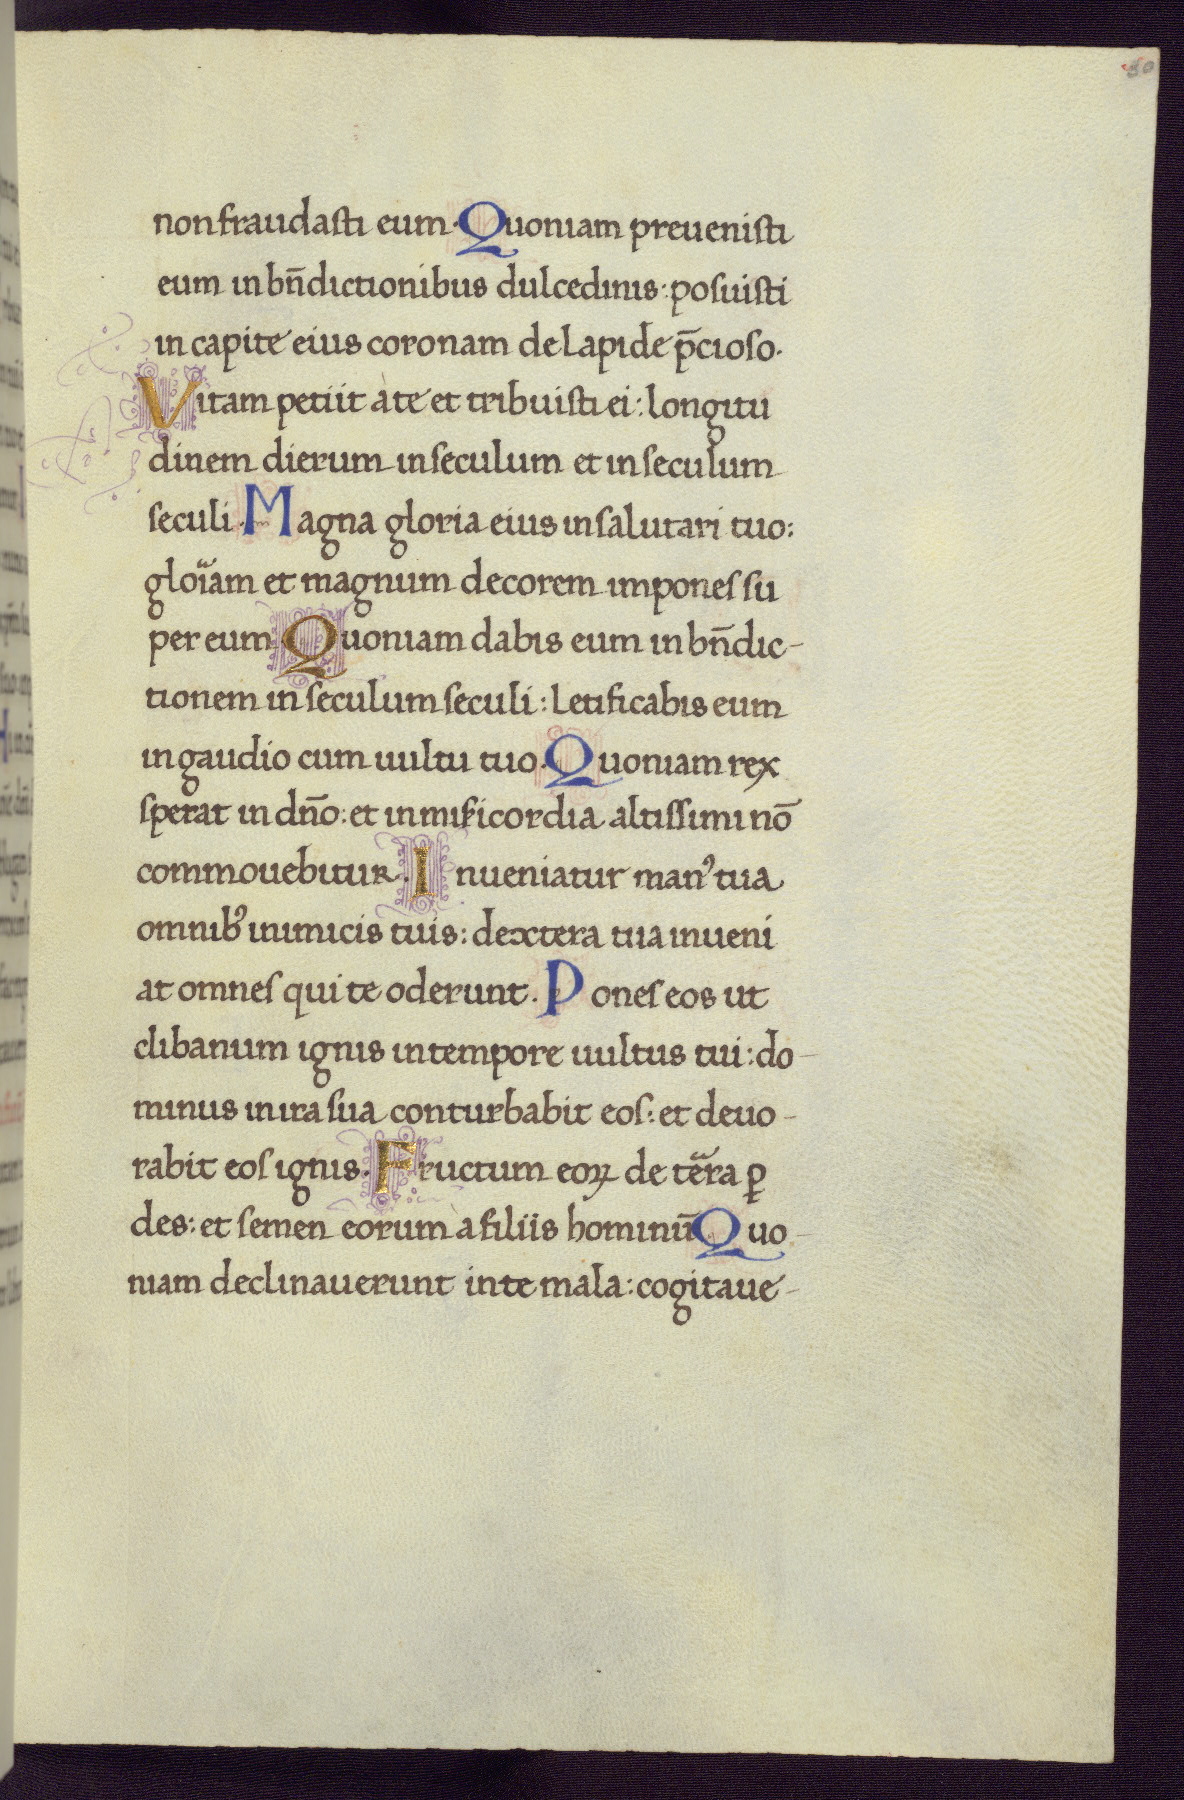 30
non fraudasti eum. Quoniam preuenisti
eum in bn̄dictionibus dulcedinis: posuisti
in capite eius coronam de lapide p̄cioso.
Vitam petiit à te et tribuisti ei: longitu
dinem dierum in seculum et in seculum
seculi. Magna gloria eius in salutari tuo:
gloiam et magnum decorem impones su
per eum Quoniam dabis eum in bn̄dic-
tionem in seculum seculi: letificabis eum
in gaudio cum uultu tuo. Quoniam rex
sperat in dn̄o: et in mis̄icordia altissimi nō
commouebitur. Inueniatur manꝰ tua
omnibꝰ inimicis tuis: dextera tua inueni
at omnes qui te oderunt. Pones eos ut
clibanum ignis in tempore uultus tui: do-
minus in ira sua conturbabit eos: et deuo-
rabit eos ignis. Fructum eoꝝ de terra ꝑ
des: et semen eorum à filiis hominū Quo-
niam declinauerunt in te mala: cogitaue-